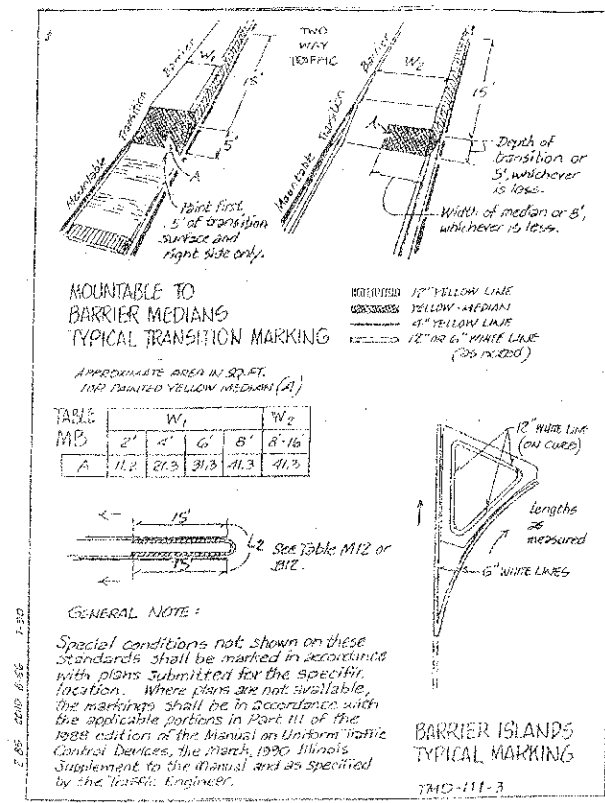 TWO
WAY
TRAFFIC
Barrier
W1
15'
Transition
5'
A
Mountable
Paint first
5' of transition
surface and
right side only.
Barrier
W2
15'
Transition
A
Mountable
Depth of
transition or
5', whichever
is less.
Width of median or 8',
whichever is less.
MOUNTABLE TO
BARRIER MEDIANS
TYPICAL TRANSITION MARKING
12" YELLOW LINE
YELLOW-MEDIAN
4" YELLOW LINE
12" OR 6" WHITE LINE
(as noted)
APPROXIMATE AREA IN SQ. FT.
FOR PAINTED YELLOW MEDIAN (A)
TABLE MB W1 W2
2' 4' 6' 8' 8'-16
A 11.2 21.3 31.3 41.3 41.3
15'
15'
See Table M12 or
12" WHITE LINE
(ON CURB)
Lengths
as
measured
6" WHITE LINES
GENERAL NOTE:
Special conditions not shown on these
standards shall be marked in accordance
with plans submitted for the specific
location. Where plans are not available,
the markings shall be in accordance with
the applicable portions in Part III of the
1988 edition of the Manual on Uniform Traffic
Control Devices, the March, 1990 Illinois
Supplement to the manual and as specified
by the Traffic Engineer.
BARRIER ISLANDS
TYPICAL MARKING
TMD-111-3